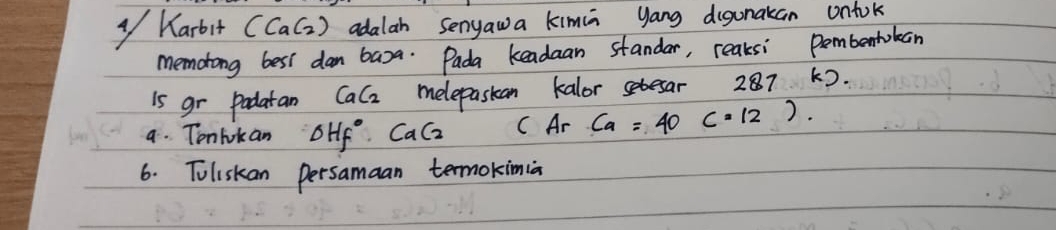 4/ Karbit (CaC2) adalah senyawa kimia yang digunakan untuk
memotong besi dan baja. Pada keadaan standar, reaksi pembentukan
15 gr padatan CaC2 melepaskan kalor sebesar 287 kJ.
a. Tentukan ΔHf° CaC2 (Ar Ca = 40 C = 12).
b. Tuliskan persamaan termokimia